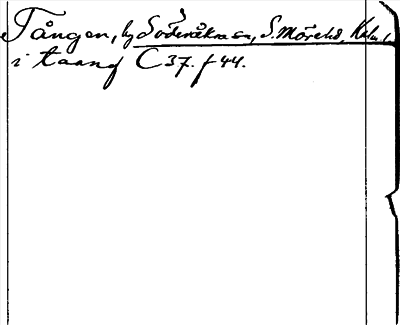 Tången, by Söderåkra sn, S. Möre hd, Kalm. l.
i taang C 37. f 44.